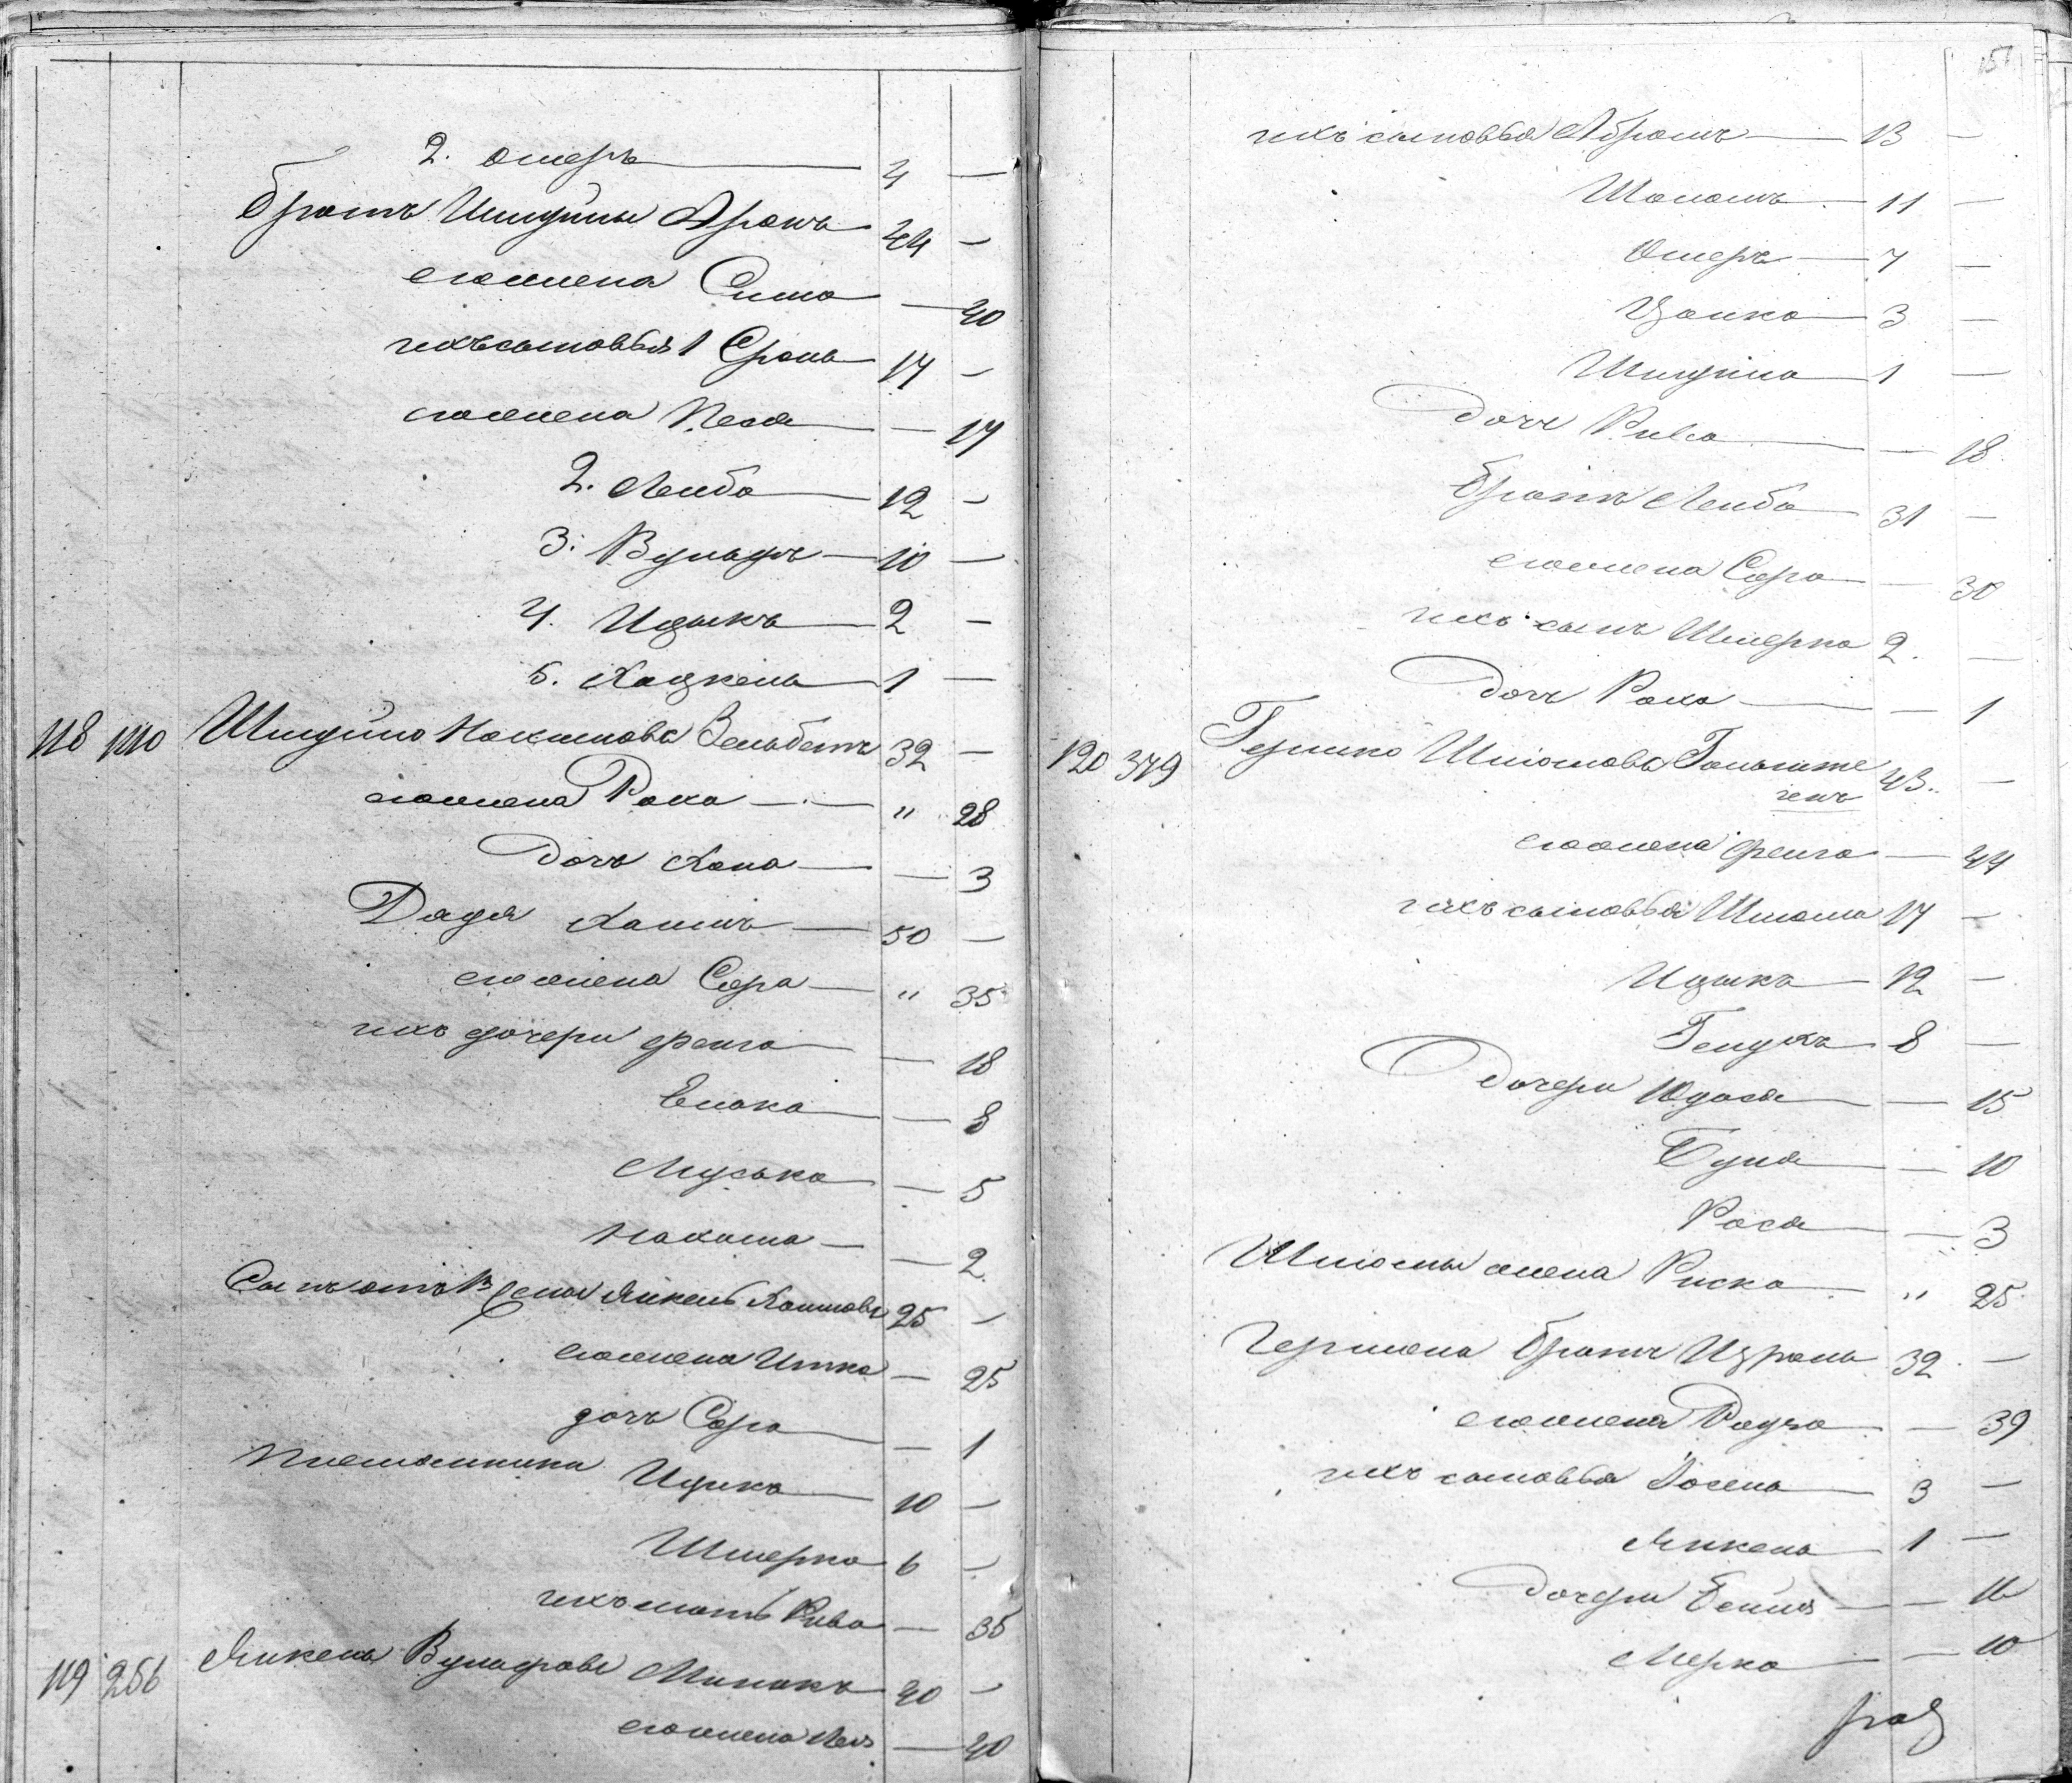 2. Омеръ — 4 —
братъ Шмуйлы Аронъ 44 —
его жена Сима — 40
ихъ сыновья 1 Сроль 17 —
его жена Песя — 17
2. Лейба — 12 —
3. Вульфъ — 10 —
4. Ицыкъ — 2 —
5. Хацкель — 1 —
118 1110 Шмуйло Нохимовъ Вельбетъ 32 —
его жена Роха — " 28
дочь Хана — — 3
Дядя Хаимъ — 50 —
его жена Сора — " 35
ихъ дочери Фейга — — 18
Блюма — — 8
Муська — — 5
Нахама — — 2
Сынъ отъ жены Янкель Хаимовъ 25 —
его жена Итка — 25
дочь Сора — — 1
Племянники Ицико — 10 —
Шмерко 6 —
ихъ мать Рива — 35
119 256 Янкель Вульфовъ Милякъ 40 —
его жена Лея — 40
151
ихъ сыновья Абрамъ — 13 —
Шоломъ — 11 —
Омеръ — 7 —
Иолко — 3 —
Шмуйло — 1 —
дочь Рива — — 18
братъ Лейба — 31 —
его жена Сора — 30
ихъ сынъ Шмерко 2. —
дочь Роха — — 1
120 379 Гершко Шлiомовъ Гольште 43. —
инъ
его жена Фейга — 44
ихъ сыновья Шлiома 17 —
Ицыкъ — 12 —
Генухъ 8 —
Дочери Юдася — — 15
Буня — — 10
Рося — — 3
Шлiомы жена Риска " 25
Гершена братъ Израль 32 —
его жена Рауза — 39
ихъ сыновья Iосель — 3 —
Янкель — 1 —
дочери Бейля — — 16
Мерка — — 10